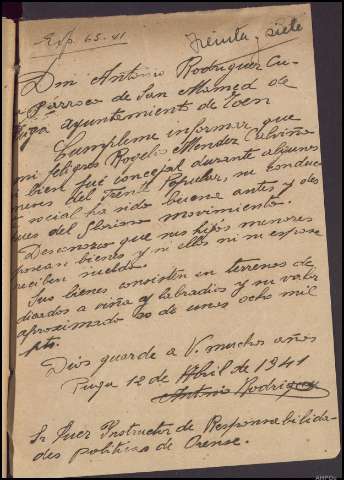 Exp. 65-41
Treinta y siete
Don Antonio Rodriguez Cu-
Párroco de San Mamed de
Puga ayuntamiento de Toén
Cumpleme informar que
mi feligres Rogelio Mendez Calviño
bien fué concejal durante algunos
meses del Frente Popular, su conduc
social ha sido buena antes y des
pues del Glorioso movimiento.
Desconozco que sus hijos menores
posean bienes y ni ellos ni su esposa
reciben sueldo.
Sus bienes consisten en terrenos de
dicados a viña y labradios y su valor
aproximado es de unas ocho mil
pts.
Dios guarde a V. muchos años
Puga 12 de Abril de 1941
Antonio Rodriguez
Sr Juez Instructor de Responsabilida-
des politicas de Orense.
AHPOu